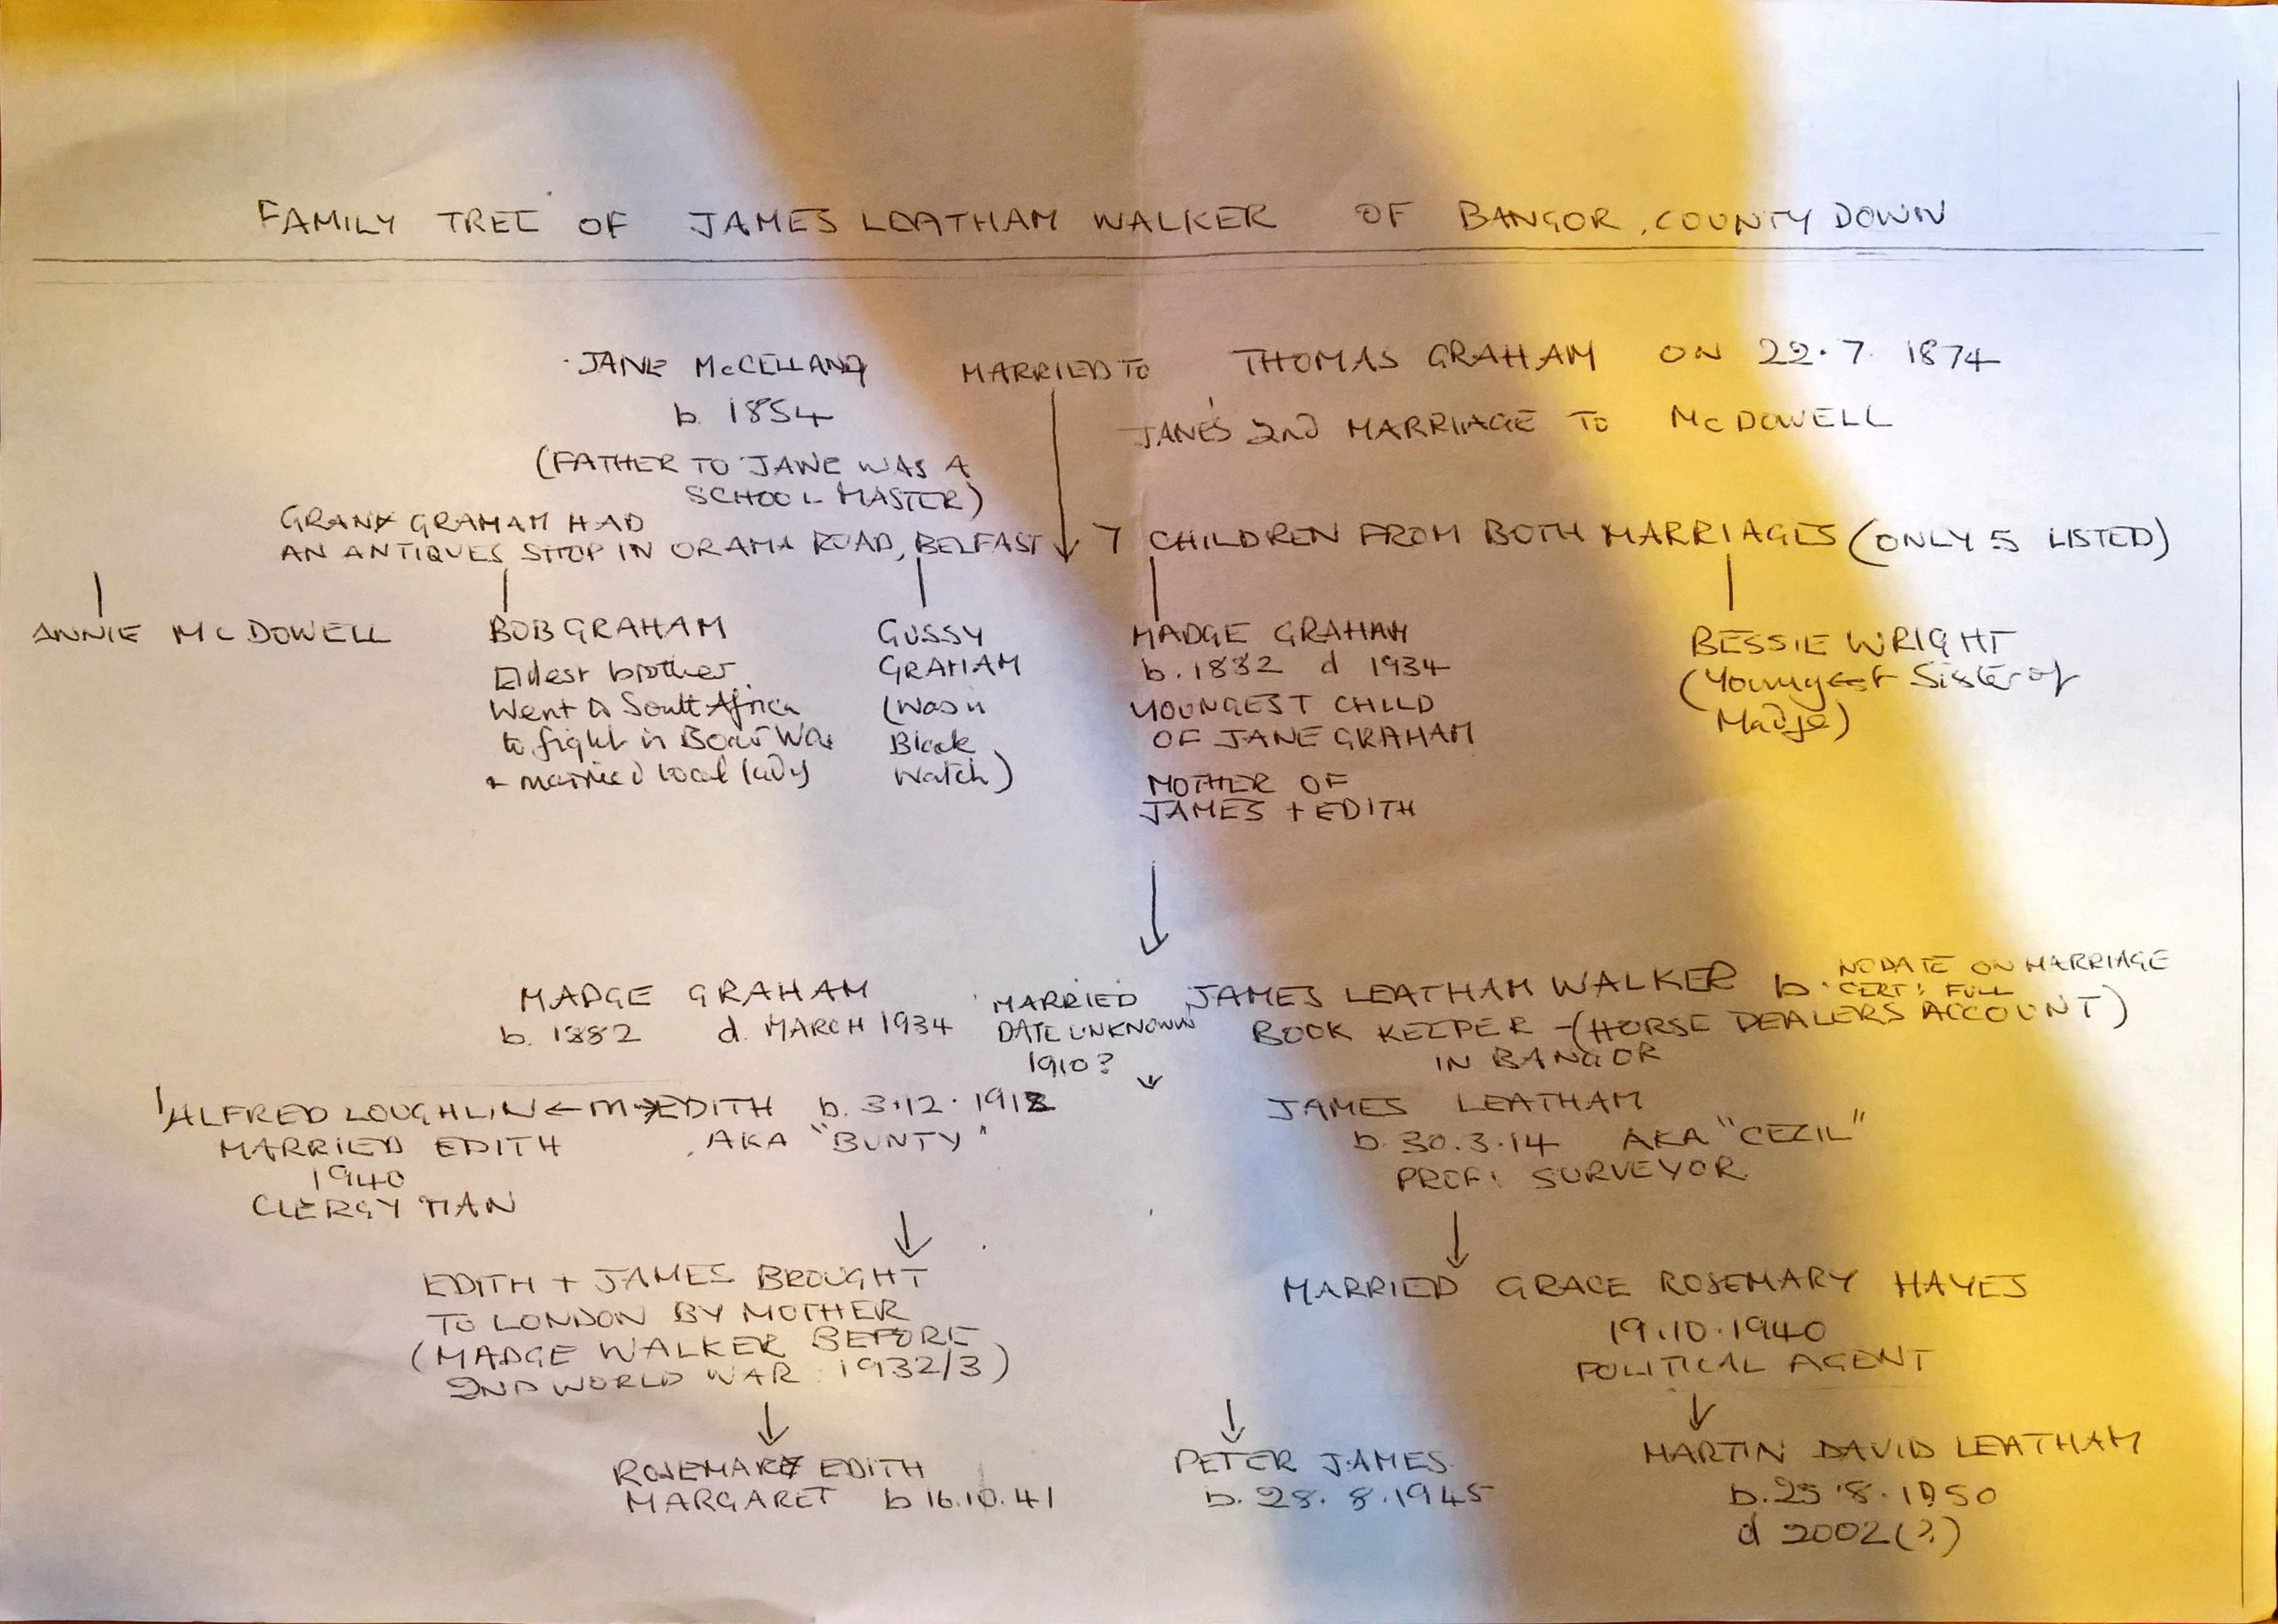 FAMILY TREE OF JAMES LEATHAM WALKER OF BANGOR, COUNTY DOWN
JANE McCELLAND MARRIED TO THOMAS GRAHAM ON 22.7.1874
b. 1854
JANE'S 2ND MARRIAGE TO McDOWELL
(FATHER TO JANE WAS A
SCHOOL MASTER)
GRANY GRAHAM HAD
AN ANTIQUES SHOP IN ORAMA ROAD, BELFAST
7 CHILDREN FROM BOTH MARRIAGES (ONLY 5 LISTED)
ANNIE McDOWELL
BOB GRAHAM
Eldest brother
Went to South Africa
to fight in Boar War
+ married local lady
GUSSY
GRAHAM
(Was in
Black
Watch)
MADGE GRAHAM
b. 1882 d 1934
YOUNGEST CHILD
OF JANE GRAHAM
MOTHER OF
JAMES + EDITH
BESSIE WRIGHT
(Youngest Sister of
Madge)
MADGE GRAHAM
b. 1882 d. MARCH 1934
MARRIED
DATE UNKNOWN
1910?
JAMES LEATHAM WALKER b. NO DATE ON MARRIAGE
CERT: FULL
BOOK KEEPER - (HORSE DEALERS ACCOUNT)
IN BANGOR
ALFRED LOUGHLIN ← m → EDITH b. 3.12.1912
MARRIED EDITH
1940
CLERGY MAN
AKA "BUNTY"
JAMES LEATHAM
b. 30.3.14 AKA "CECIL"
PROF: SURVEYOR
EDITH + JAMES BROUGHT
TO LONDON BY MOTHER
(MADGE WALKER BEFORE
2ND WORLD WAR 1932/3)
MARRIED GRACE ROSEMARY HAYES
19.10.1940
POLITICAL AGENT
ROSEMARY EDITH
MARGARET b 16.10.41
PETER JAMES
b. 28.8.1945
MARTIN DAVID LEATHAM
b. 25.8.1950
d 2002(?)